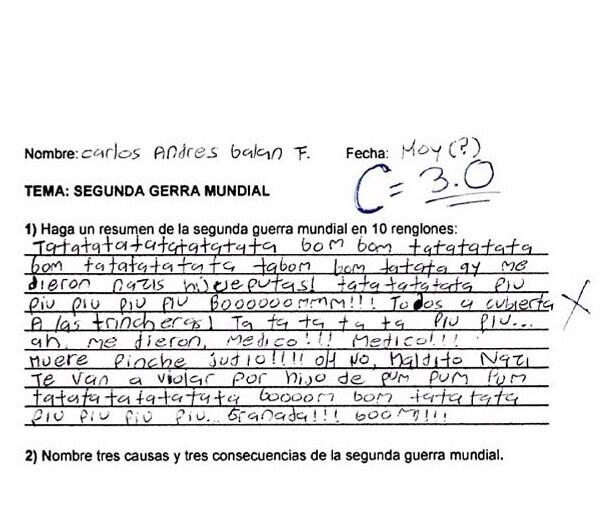 Nombre: carlos Andres Galan F. Fecha: Hoy (?)
C = 3.0
TEMA: SEGUNDA GERRA MUNDIAL
1) Haga un resumen de la segunda guerra mundial en 10 renglones:
Tatatatatatatatatata bom bom tatatatata
bom tatatatatata tabom bom tatata ay me
dieron nazis hijueputas! tatatatatata piu
piu piu piu piu Boooooommm!!! Todos a cubierta
A las trincheras! Ta ta ta ta ta piu piu...
ah, me dieron, Medico!!! Medico!!!
muere pinche judio!!!! oh no, maldito Nazi
Te van a violar por hijo de pum pum pum
tatatatatatatata booooom bom tatatatata
piu piu piu piu... Granada!!! boom!!!!
2) Nombre tres causas y tres consecuencias de la segunda guerra mundial.